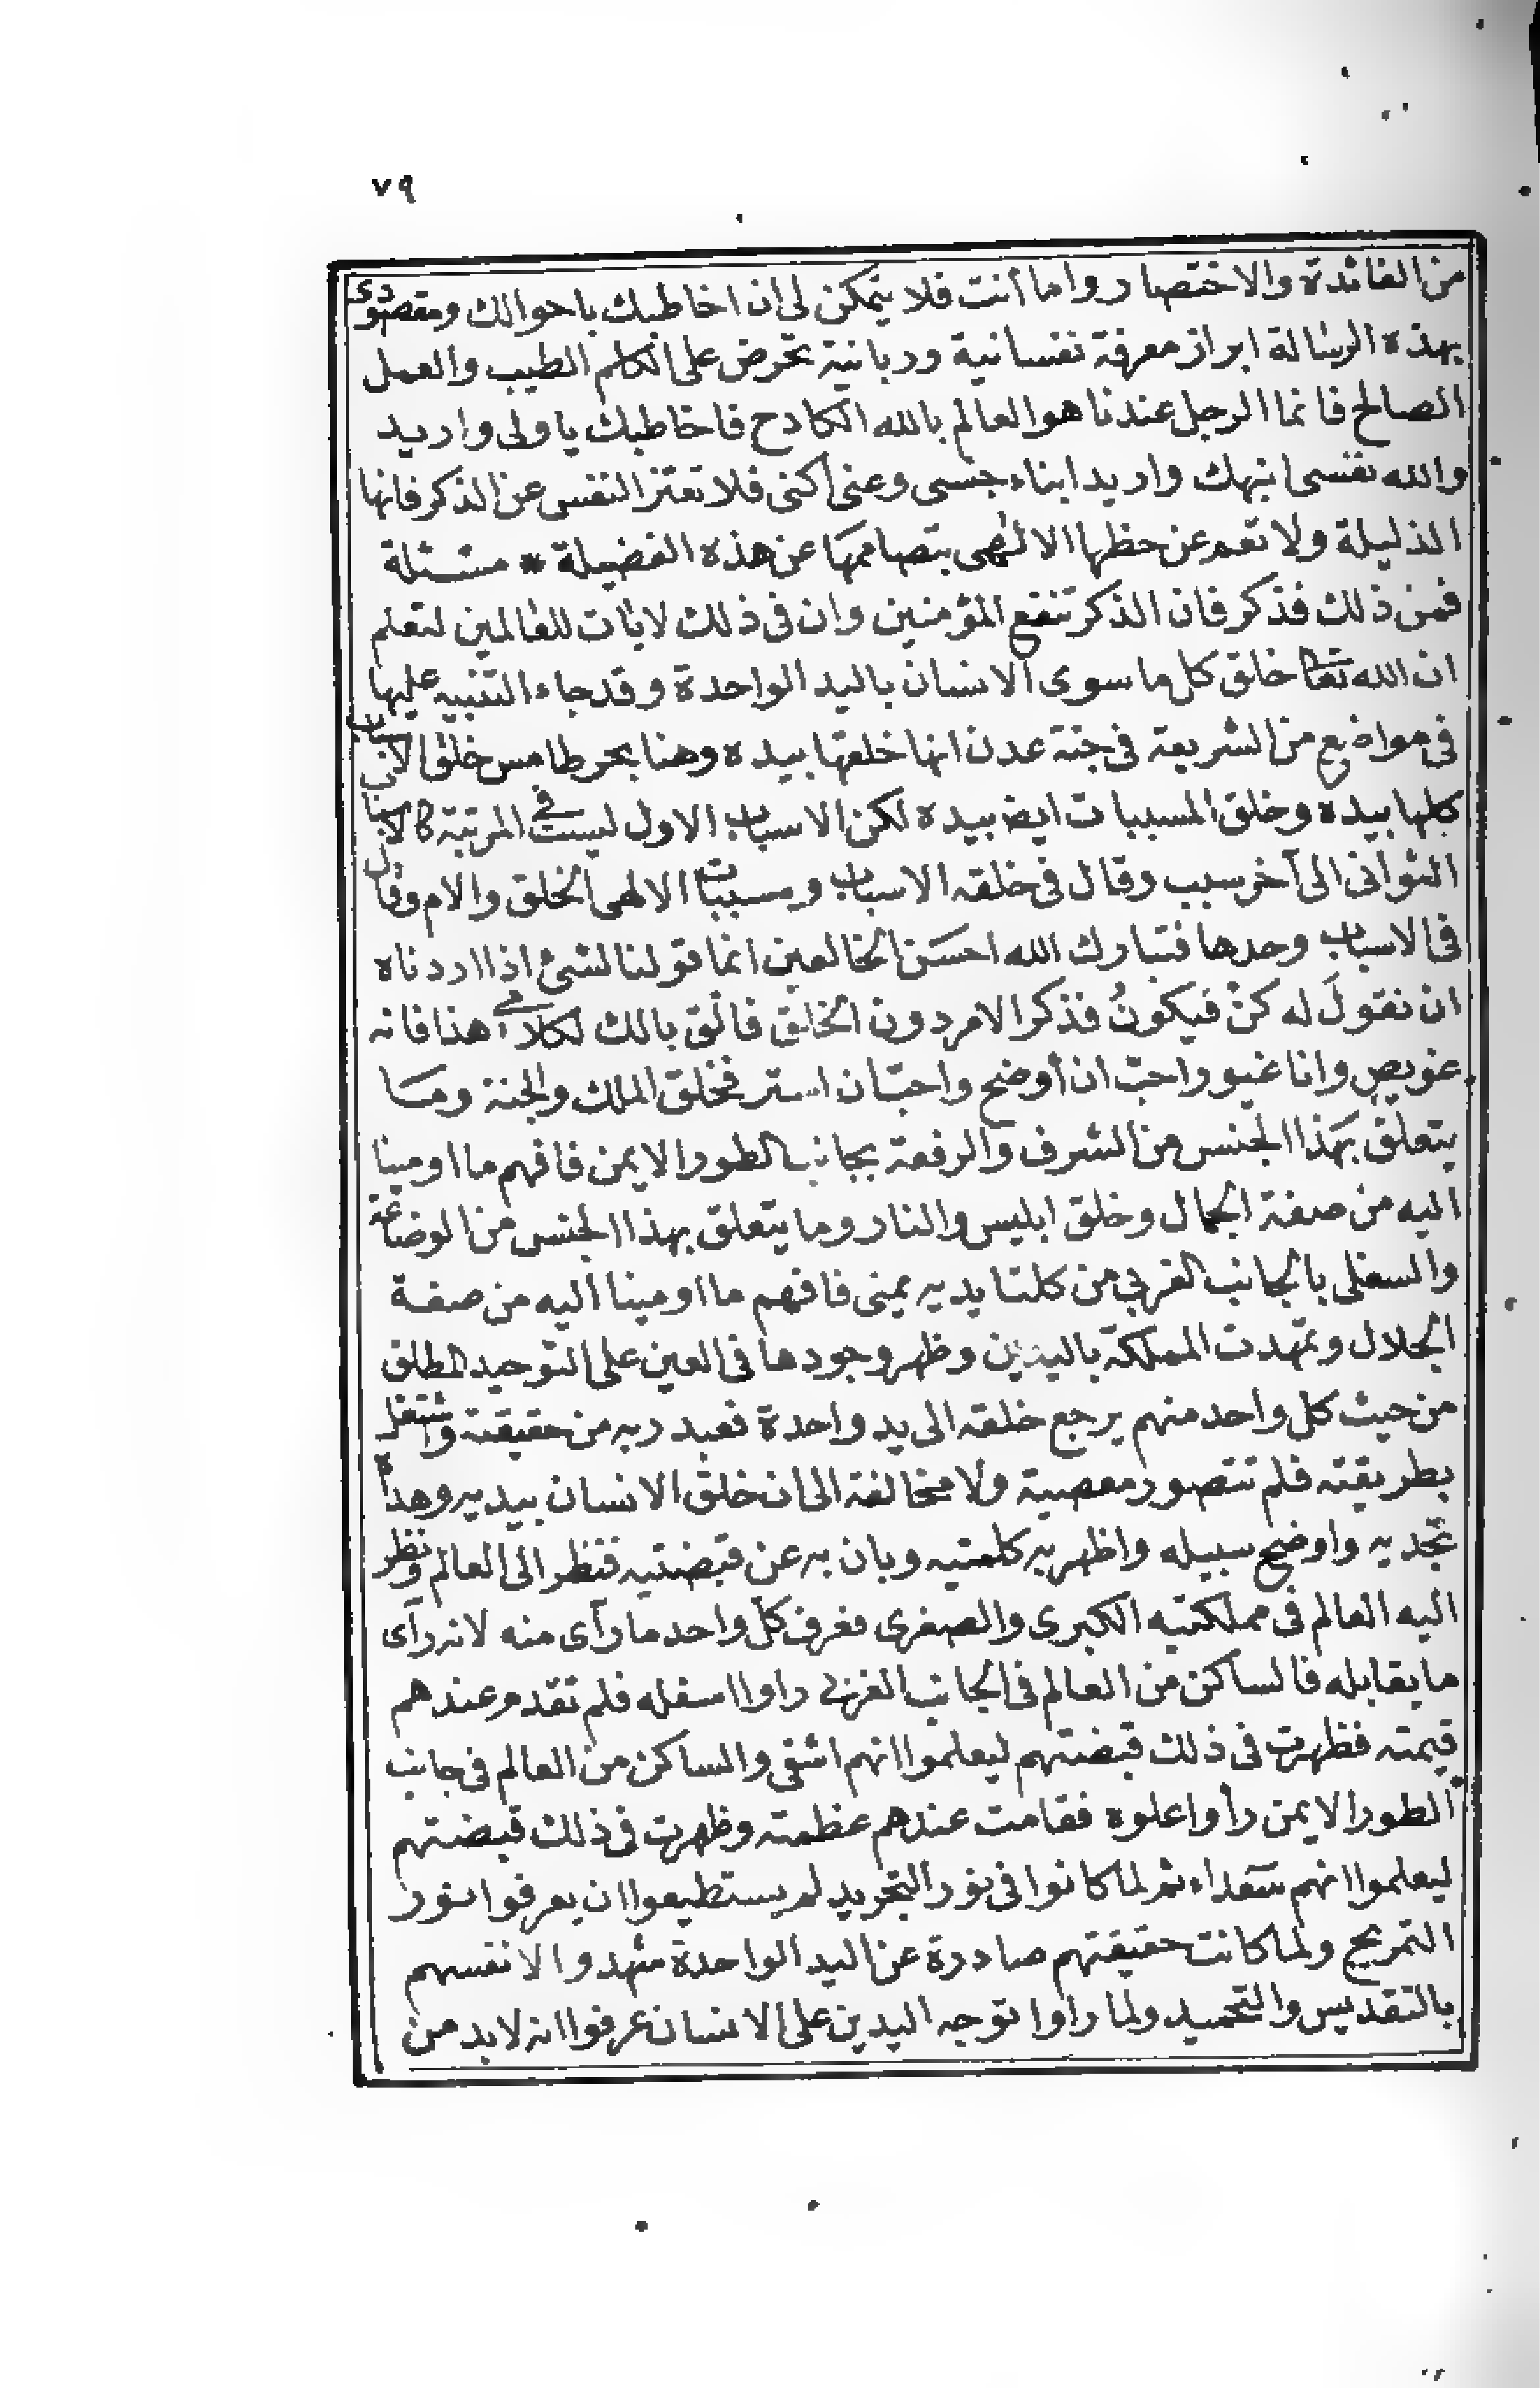 ٧٩
من الفائدة والاختصار واما أنت فلا يتمكن لى ان اخاطبك باحوالك ومقصودى
بهذه الرسالة ابراز معرفة نفسانية وربانية تحرض على الكلم الطيب والعمل
الصالح فانما الرجل عندنا هو العالم بالله الكادح فاخاطبك ياولى واريد
والله نفسى انبهك واريد ابناء جنسى وعنى اكنى فلا تغتر النفس عن الذكر فانها
الذليلة ولا تعم عن حظها الالهى بتصاممها عن هذه الفضيلة * مسئلة
فمن ذلك فذكر فان الذكر تنفع المؤمنين وان فى ذلك لايات للعالمين لتعلم
ان الله تعا خلق كل ما سوى الانسان باليد الواحدة وقد جاء التنبيه عليها
فى مواضع من الشريعة فى جنة عدن انها خلقها بيده وهنا بحر طامس خلق الاسباب
كلها بيده وخلق المسببات ايض بيده لكن الاسباب الاول ليست فى المرتبة كالاسباب
الثوانى الى آخر سبب وقال فى خلقه الاسباب ومسببات الا لهى الخلق والامر وقال
فى الاسباب وحدها فتبارك الله احسَن الخالقين انما قولنا لشئ اذا اردناه
ان نقولَ له كنْ فَيكونُ فذكر الامر دون الخلق فالق بالك لكلامى هذا فانه
عويص وانا غيور احبّ ان أوضح واحبّ ان استر فخلق الملك والجنة ومَا
يتعلق بهَذا الجنس من الشرف والرفعة بجانب الطور الايمن فافهم ما اومينا
اليه من صفة الجمال وخلق ابليس والنار وما يتعلق بهذا الجنس من الوضاعة
والسفلى بالجانب الغربى من كلتا يديه يمنى فافهم ما اومينا اليه من صفة
الجلال وتمهدت المملكة باليدين وظهر وجودها فى العين على التوحيد المطلق
من حيث كل واحد منهم يرجع خلقه الى يد واحدة فعبد ربه من حقيقته واشتغل
بطريقته فلم تتصور معصية ولا مخالفة الى ان خلق الانسان بيديه وهداه
نجديه واوضح سبيله واظهر به كلمتيه وبان به عن قبضتيه فنظر الى العالم ونظر
اليه العالم فى مملكتيه الكبرى والصغرى فعرف كلّ واحد ما رآى منه لانه رآى
ما يقابله فالساكن من العالم فى الجانب الغربى راوا اسفله فلم تقدم عندهم
قيمته فظهرت فى ذلك قبضتهم ليعلموا انهم اشقى والساكن من العالم فى جانب
الطور الايمن رأوا اعلوه فقامت عندهم عظمته وظهرت فى ذلك قبضتهم
ليعلموا انهم سَعداء ثم لما كانوا فى نور التجريد لم يستطيعوا ان يعرفوا نور
التمريج ولما كانت حقيقتهم صادرة عن اليد الواحدة شهدوا لانفسهم
بالتقديس والتحميد ولما راوا توجه اليدين على الانسان عرفوا انه لابد من